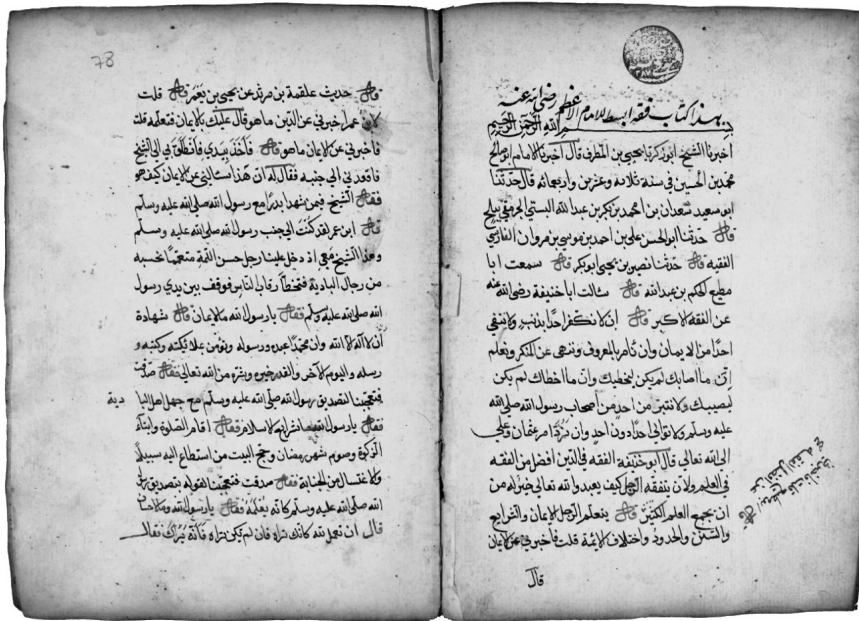 هذا كتاب فقه ابسط للامام الاعظم رضى الله عنه
بسم الله الرحمن الرحيم
اخبرنا الشيخ ابو زكريا يحيى بن المطرف قال اخبرنا الامام ابو صالح
محمد بن الحسين في سنة ثلاثة وعشرين واربعمائة قال حدثنا
ابو سعيد سعدان بن احمد بن بكر بن عبد الله البستي الجرمقي ببلخ
قال حدثنا ابو الحسن علي بن احمد بن موسى بن مروان الفارسي
الفقيه قال حدثنا نصير بن يحيى ابو بكر قال سمعت ابا
مطيع الحكم بن عبد الله قال سالت ابا حنيفة رضى الله عنه
عن الفقه الاكبر قال ان لا تكفر احدا بذنب ولا تنفي
احدا من الايمان وان تامر بالمعروف وتنهى عن المنكر وتعلم
ان ما اصابك لم يكن ليخطيك وان ما اخطاك لم يكن
ليصيبك ولا تتبرء من احد من اصحاب رسول الله صلى الله
عليه وسلم ولا توالي احدا دون احد وان ترد امر عثمان وعلي
الى الله تعالى قال ابو حنيفة الفقه في الدين افضل من الفقه
في العلم ولان يتفقه الرجل كيف يعبد الله تعالى خير له من
ان يجمع العلم الكثير قال يتعلم الرجل الايمان والشرايع
والسنن والحدود واختلاف الائمة قلت فاخبرني عن الايمان
قال
78
قال حديث علقمة بن مرثد عن يحيى بن يعمر قال قلت
لابن عمر اخبرني عن الدين ما هو قال عليك بالايمان فتعلمه قلت
فاخبرني عن الايمان ما هو قال فاخذ بيدي فانطلق بي الى الشيخ
فاقعدني الى جنبه فقال له ان هذا سئالني عن الايمان كيف هو
فقال الشيخ فيمن شهد بدرا مع رسول الله صلى الله عليه وسلم
قال ابن عمر لقد كنت الى جنب رسول الله صلى الله عليه وسلم
وهذا الشيخ معي اذ دخل علينا رجل حسن اللمة متعمما نحسبه
من رجال البادية فتخطا رقاب الناس فوقف بين يدي رسول
الله صلى الله عليه وسلم فقال يا رسول الله ما الايمان قال شهادة
ان لا اله الا الله وان محمدا عبده ورسوله وتؤمن بملائكته وكتبه و
رسله واليوم الآخر والقدر خيره وشره من الله تعالى فقال صدقت
فتعجبنا لتصديق رسول الله صلى الله عليه وسلم مع جهل اهل البا دية
فقال يا رسول الله ما شرايع الاسلام فقال اقام الصلوة وايتاء
الزكوة وصوم شهر رمضان وحج البيت من استطاع اليه سبيلا
والاغتسال من الجنابة فقال صدقت فتعجبنا لقوله بتصديق رسول
الله صلى الله عليه وسلم كانه يعلمه فقال يا رسول الله وما الاحسان
قال ان تعمل لله كانك تراه فان لم تكن تراه فانه يراك فقال